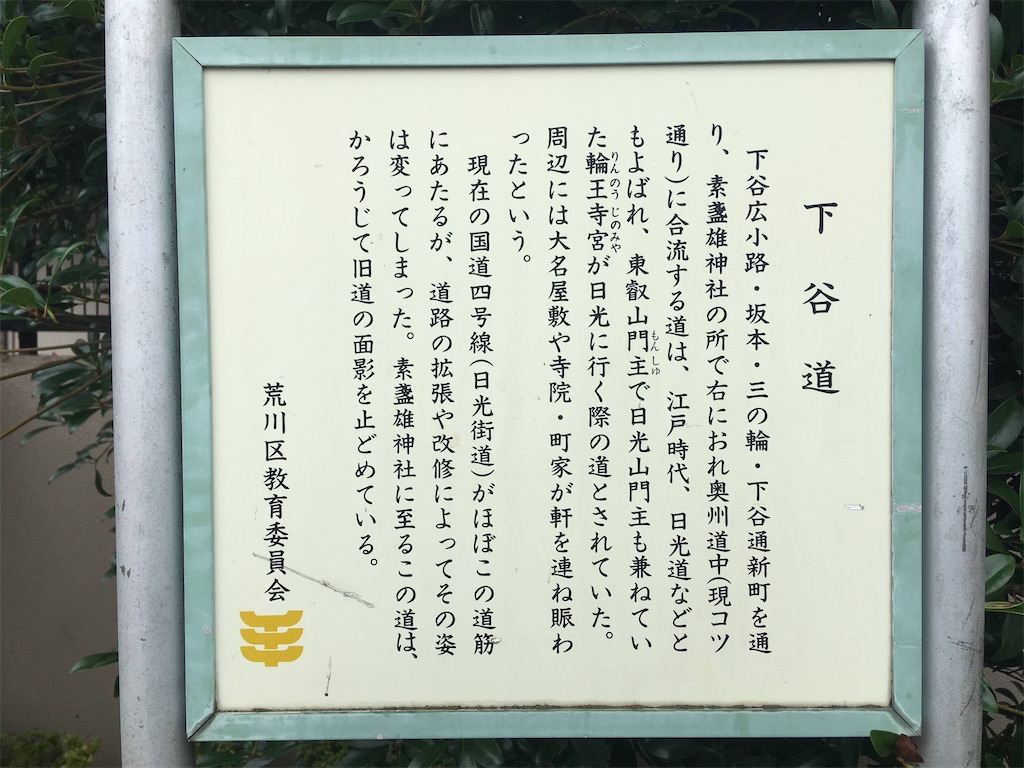 下谷道
下谷広小路・坂本・三の輪・下谷通新町を通
り、素盞雄神社の所で右におれ奥州道中(現コツ
通り)に合流する道は、江戸時代、日光道などと
もよばれ、東叡山門主で日光山門主も兼ねてい
もんしゅ
た輪王寺宮が日光に行く際の道とされていた。
りんのうじのみや
周辺には大名屋敷や寺院・町家が軒を連ね賑わ
ったという。
現在の国道四号線(日光街道)がほぼこの道筋
にあたるが、道路の拡張や改修によってその姿
は変ってしまった。素盞雄神社に至るこの道は、
かろうじて旧道の面影を止どめている。
荒川区教育委員会